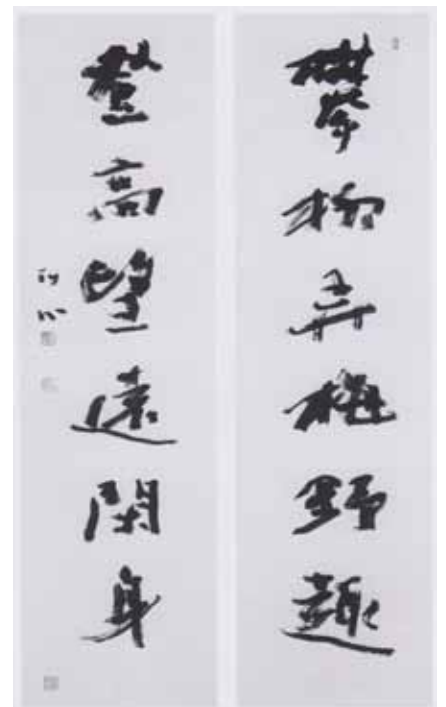 攀柳弄梅野趣
登高望遠閑身